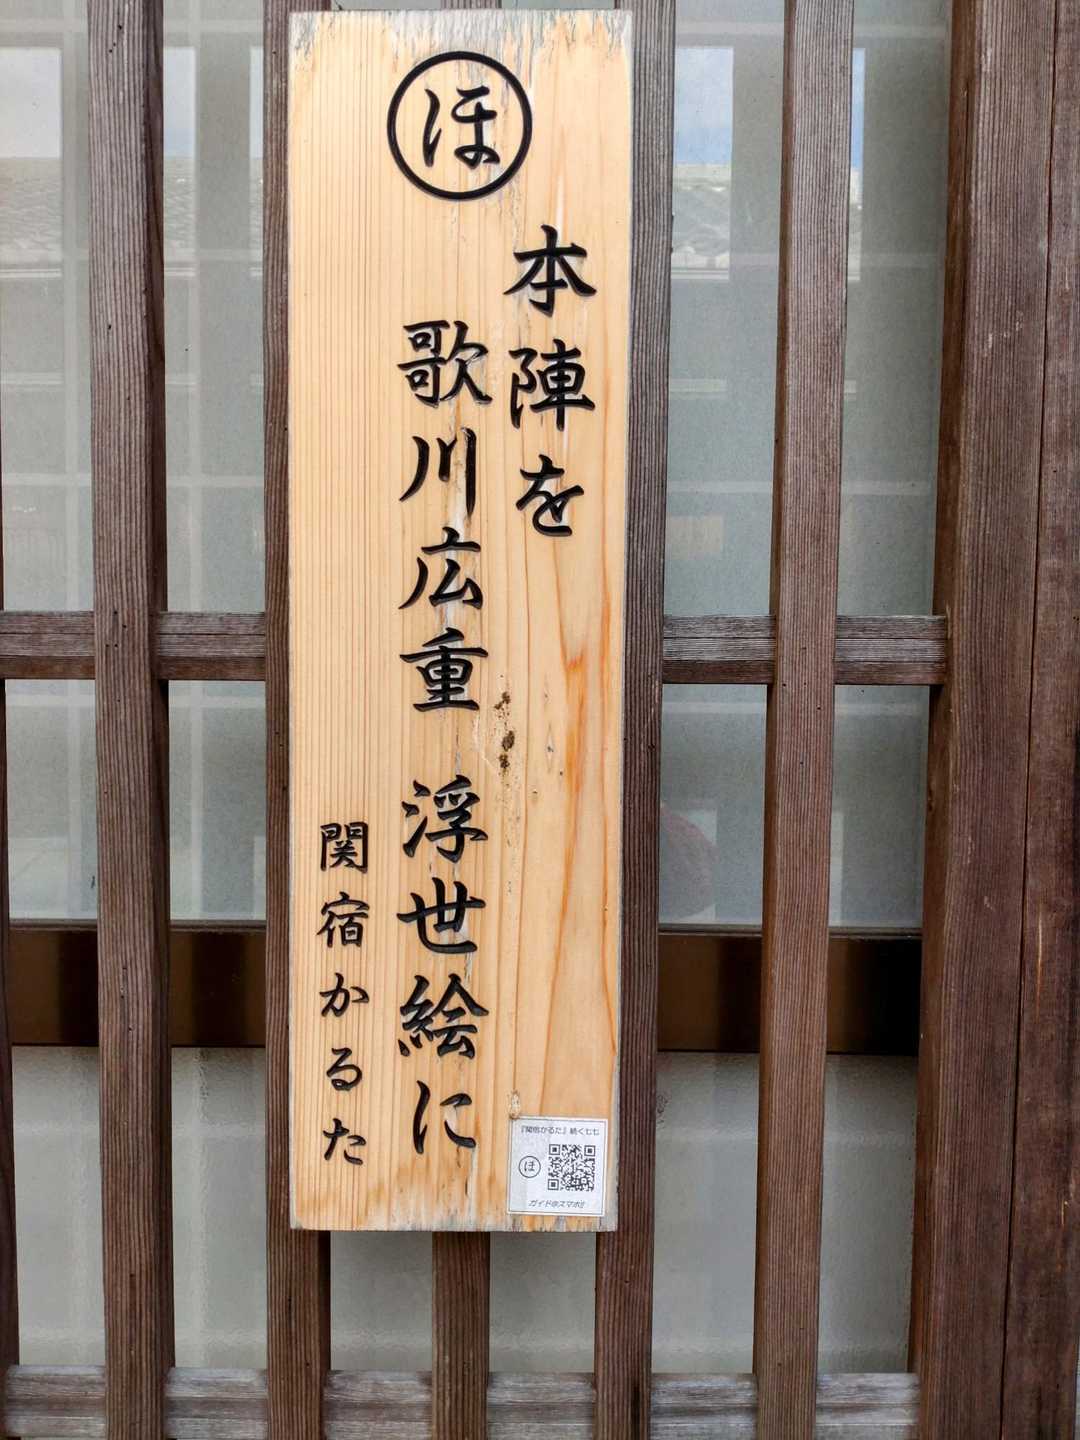 ほ
本陣を
歌川広重 浮世絵に
関宿かるた
『関宿かるた』続く七七
ほ
ガイド@スマホ!!